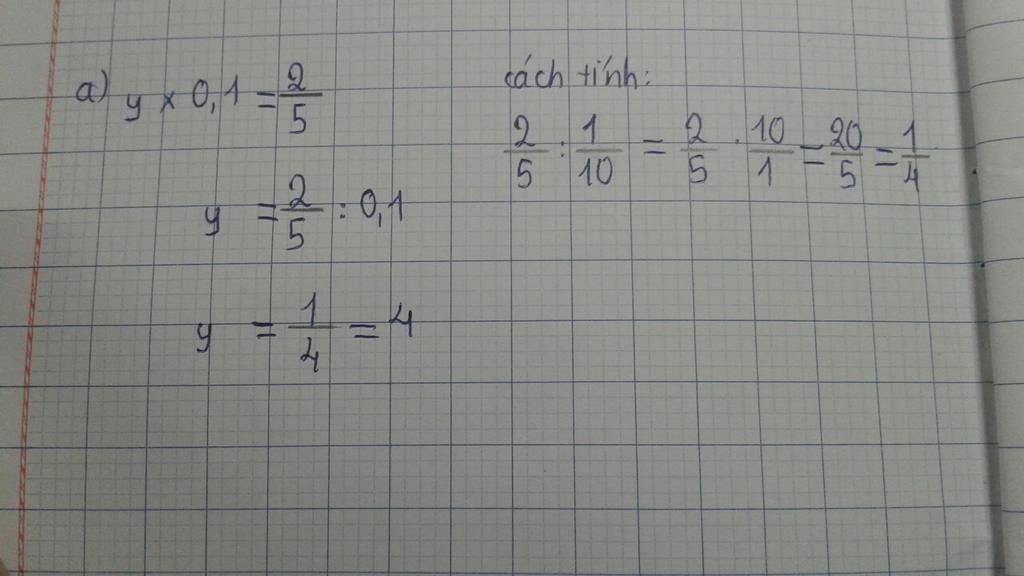 a) y x 0,1 = 2/5
y = 2/5 : 0,1
y = 1/4 = 4
cách tính:
2/5 : 1/10 = 2/5 . 10/1 = 20/5 = 1/4